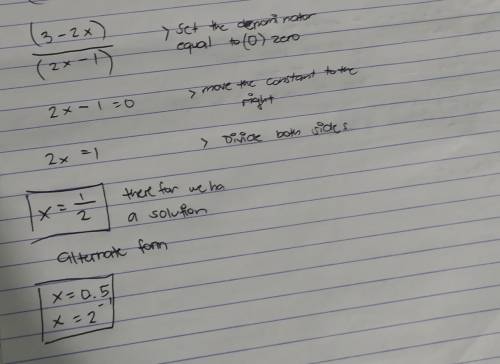 (3-2x)
(2x-1)
> Set the denominator
equal to (0) zero
2x-1=0
> move the constant to the
right
2x=1
> Divide both sides
x = 1/2
there for we ha
a solution
alternate form
x = 0.5
x = 2^-1